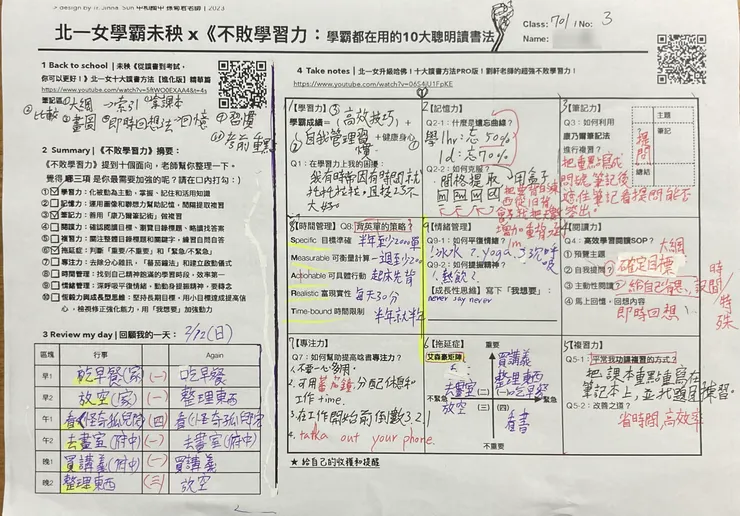 design by Irianna Sun 中和國中 孫菊君老師 | 2023
北一女學霸未秧 x《不敗學習力：學霸都在用的10大聰明讀書法》
Class: 701 / No: 3
Name:
1 Back to school | 未秧《從讀書到考試，
你可以更好！》北一女十大讀書方法【進化版】精華篇
筆記區
①大綱 →索引 ⑤拿課本
⑧比較 ②畫圖 ④即時回想法→回憶 ⑨習慣
⑩考前重點
2 Summary | 《不敗學習力》摘要：
《不敗學習力》提到十個面向，老師幫你整理一下。
覺得哪三項是你最需要加強的呢？請在口內打勾：）
① 學習力：化被動為主動，掌握、記住和活用知識
② 記憶力：運用圖像和聯想力幫助記憶，間隔提取複習
③ 筆記力：善用「康乃爾筆記法」做複習
④ 閱讀力：確認閱讀目標、瀏覽目錄標題、略讀找答案
⑤ 複習力：關注整體目錄標題和關鍵字，練習自問自答
⑥ 拖延症：判斷「重要/不重要」和「緊急/不緊急」
⑦ 專注力：去除分心雜訊，「蕃茄鐘法」和建立啟動儀式
⑧ 時間管理：找到自己精神飽滿的學習時段，效率第一
⑨ 情緒管理：深呼吸平復情緒，勤動身提振精神，要轉念
⑩ 恆毅力與成長型思維：堅持長期目標，不用小目標達成提高信
心，檢視修正強化能力，用「我想要」加強動力
3 Review my day | 回顧我的一天： 2/12 (日)
區塊 行事 Again
早1 吃早餐(家) (一) 吃早餐
早2 放空(家) (一) 整理東西
午1 看《怪奇孤兒院》 (四) 看《怪奇孤兒院》
午2 去畫室(府中) (一) 去畫室(府中)
晚1 買講義(府中) (一) 買講義
晚2 整理東西 (三) 放空
4 Take notes | 北一女升級哈佛！十大讀書方法PRO版！劉軒老師的超強不敗學習力！
1/【學習力】
學霸成績＝(高效技巧)＋
自我管理習慣＋健康身心
Q1：在學習力上我的困擾：
我有時候因有時間就
拖拖拉拉。且技巧不
大好
2【記憶力】
Q2-1：什麼是遺忘曲線？
學 1hr：忘50%
1d：忘70%
Q2-2：如何克服？
間格提取→用盒子
3【筆記力】
Q3：如何利用
康乃爾筆記法
進行複習？
主題
提問
筆記
總結
把重點寫成
問句,筆記後
遮住筆記看提問能否
答出。
8【時間管理】Q8：背英單的策略？
Specific 目標準確 半年到2000單
Measurable 可衡量計算 一週到200
Actionable 可具體行動 起床先背
Realistic 富現實性 每天30分
Time-bound 時間限制 半年就半年
9【情緒管理】
Q9-1：如何平復情緒？
1.冰水 2.yoga 3.深呼吸
Q9-2：如何提振精神？
1.熱飲！
【成長性思維】寫下「我想要」：
never say never
4【閱讀力】
Q4：高效學習閱讀SOP？
① 預覽主題 大綱
② 自我提問 確定目標
③ 主動性閱讀 給自己答
④ 馬上回想，回想內容
即時回想！
7【專注力】
Q7：如何幫助提高啥書專注力？
1.不要一心多用。
2.可用蕃茄鐘,分配休息和
工作time.
3.在工作開始前倒數3.2.1
4. talka out your phone.
6【拖延症】
艾森豪矩陣
重要
買講義
整理東西
去畫室 (二) (一) 吃早餐
不緊急 緊急
放空 (三) (四) 看書
不重要
5【複習力】
Q5-1：平常我功課複習的方式？
把課本重點重寫在
筆記本上,並找題目練習。
Q5-2：改善之道？
省時間,高效率
★ 給自己的收穫和提醒